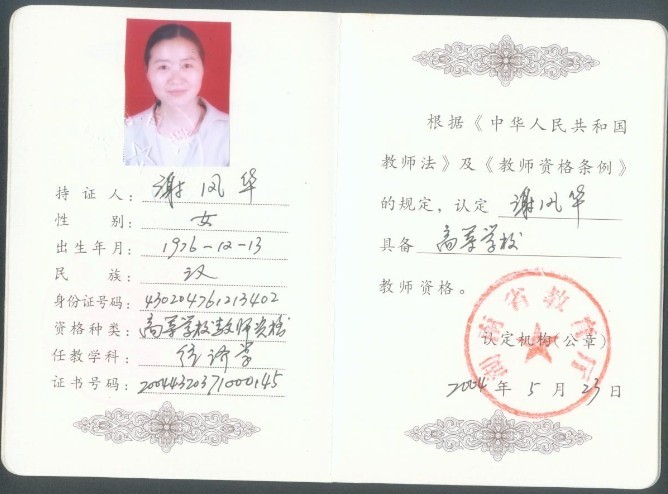 持证人：谢风华
性别：女
出生年月：1976-12-13
民族：汉
身份证号码：430204761213402
资格种类：高等学校教师资格
任教学科：经济学
证书号码：20044320371000145
根据《中华人民共和国
教师法》及《教师资格条例》
的规定，认定 谢风华
具备 高等学校
教师资格。
湖南省教育厅
认定机构（公章）
2004年5月23日